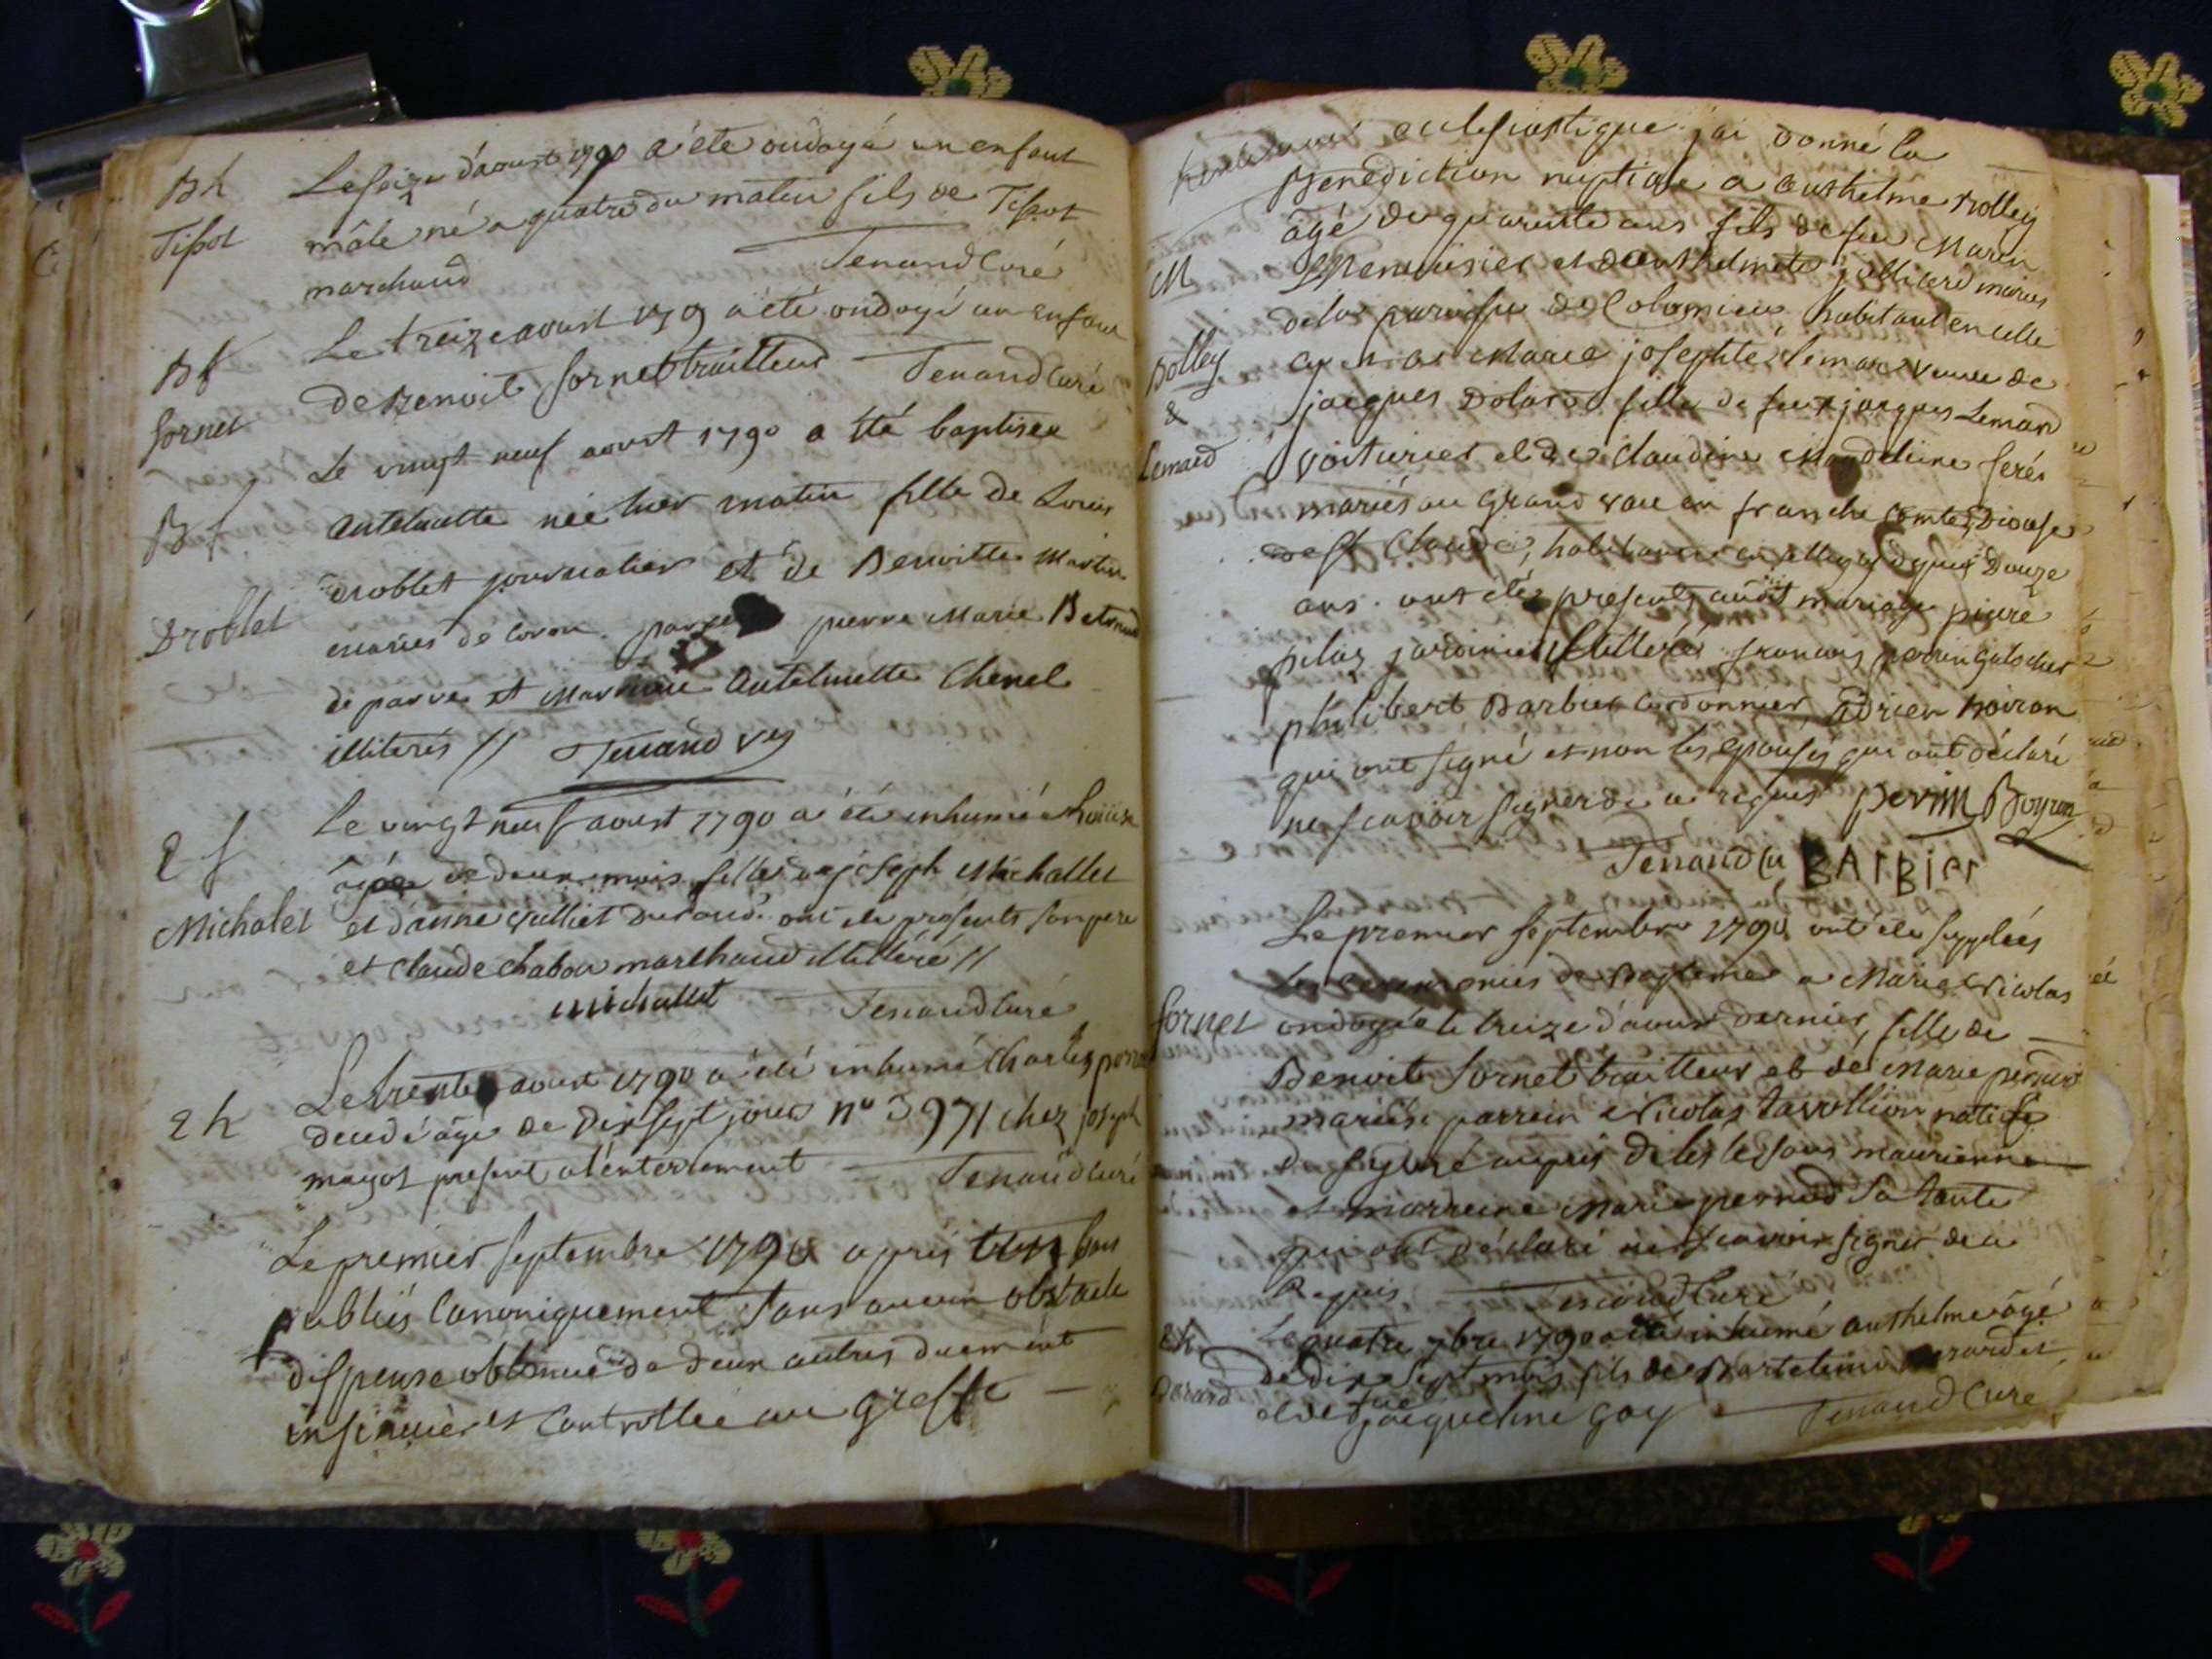 Bh
Tissot
Le seize d'aoust 1790 a été ondoyé un enfant
mâle né a quatre du matin fils de Tissot
marchand Tenand Curé
Bf
fornet
Le treize aoust 179 a été ondoyé un enfant
de Benoit fornet traitteur Tenand Curé
Bf
Droblet
Le vingt neuf aoust 1790 a été baptisée
antelmette née hier matin fille de Louis
Droblet journalier et de Benoitte Martin
mariés de Coron. pierre Marie
de parve et Marraine Antelmette Chenel
illiterés // Tenand
Ef
Michalet
Le vingt neuf aoust 1790 a été inhumé Louise
âgée de deux mois fille de joseph Michallet
et d'anne durand. ont été présents son pere
et Claude Chabou marchand illitéré //
Michallet Tenand Curé
Eh
Le trente aoust 1790 a été inhumé Charles
décédé âgé de dix sept jours n° 3971 chez joseph
magot présent a l'enterrement Tenand Curé
Le premier septembre 1790 apres un ban
publiés Canoniquement sans aucun obstacle
dispense obtenue de deux autres duement
insinuée et Controllée au greffe
ecclesiastique j'ai donné la
M
Bolley
&
Lemard
Benediction nuptiale a anthelme Bolley
âgé de quarante ans fils de feu Marin
Menuisier et d'anthelmete mariés
de la paroisse de Colomieu habitant en celle
cy et a Marie josephte Lemard veuve de
jacques Dolard fille de feu jacques Lemard
voiturier et de Claudine Magdeleine feréz
mariés au grand vau en franche Comté Diocese
de st Claude, habitante en celle cy depuis Douze
ans. ont été présents audit mariage pierre
pelaz jardinier illiteré francois perrin
philibert Barbier Cordonnier, adrien Boiron
qui ont signé et non les epouses qui ont déclaré
ne scavoir signer de ce requis Perrin Boyron
Tenand Cu BArBier
fornet
Le premier septembre 1790 ont été supplées
les ceremonies de Bapteme a Marie Nicolas
ondoyée le treize d'aoust dernier, fille de
Benoit fornet traitteur et de Marie pernod
mariés. parrein Nicolas natif
maurienne
et marreine Marie pernod sa tante
qui ont déclaré ne scavoir signer de ce
Requis Tenand Curé
Eh
Le quatre 7bre 1790 a été inhumé anthelme âgé
de dix sept mois fils de Bartelemi
et de jacqueline goy Tenand Cure